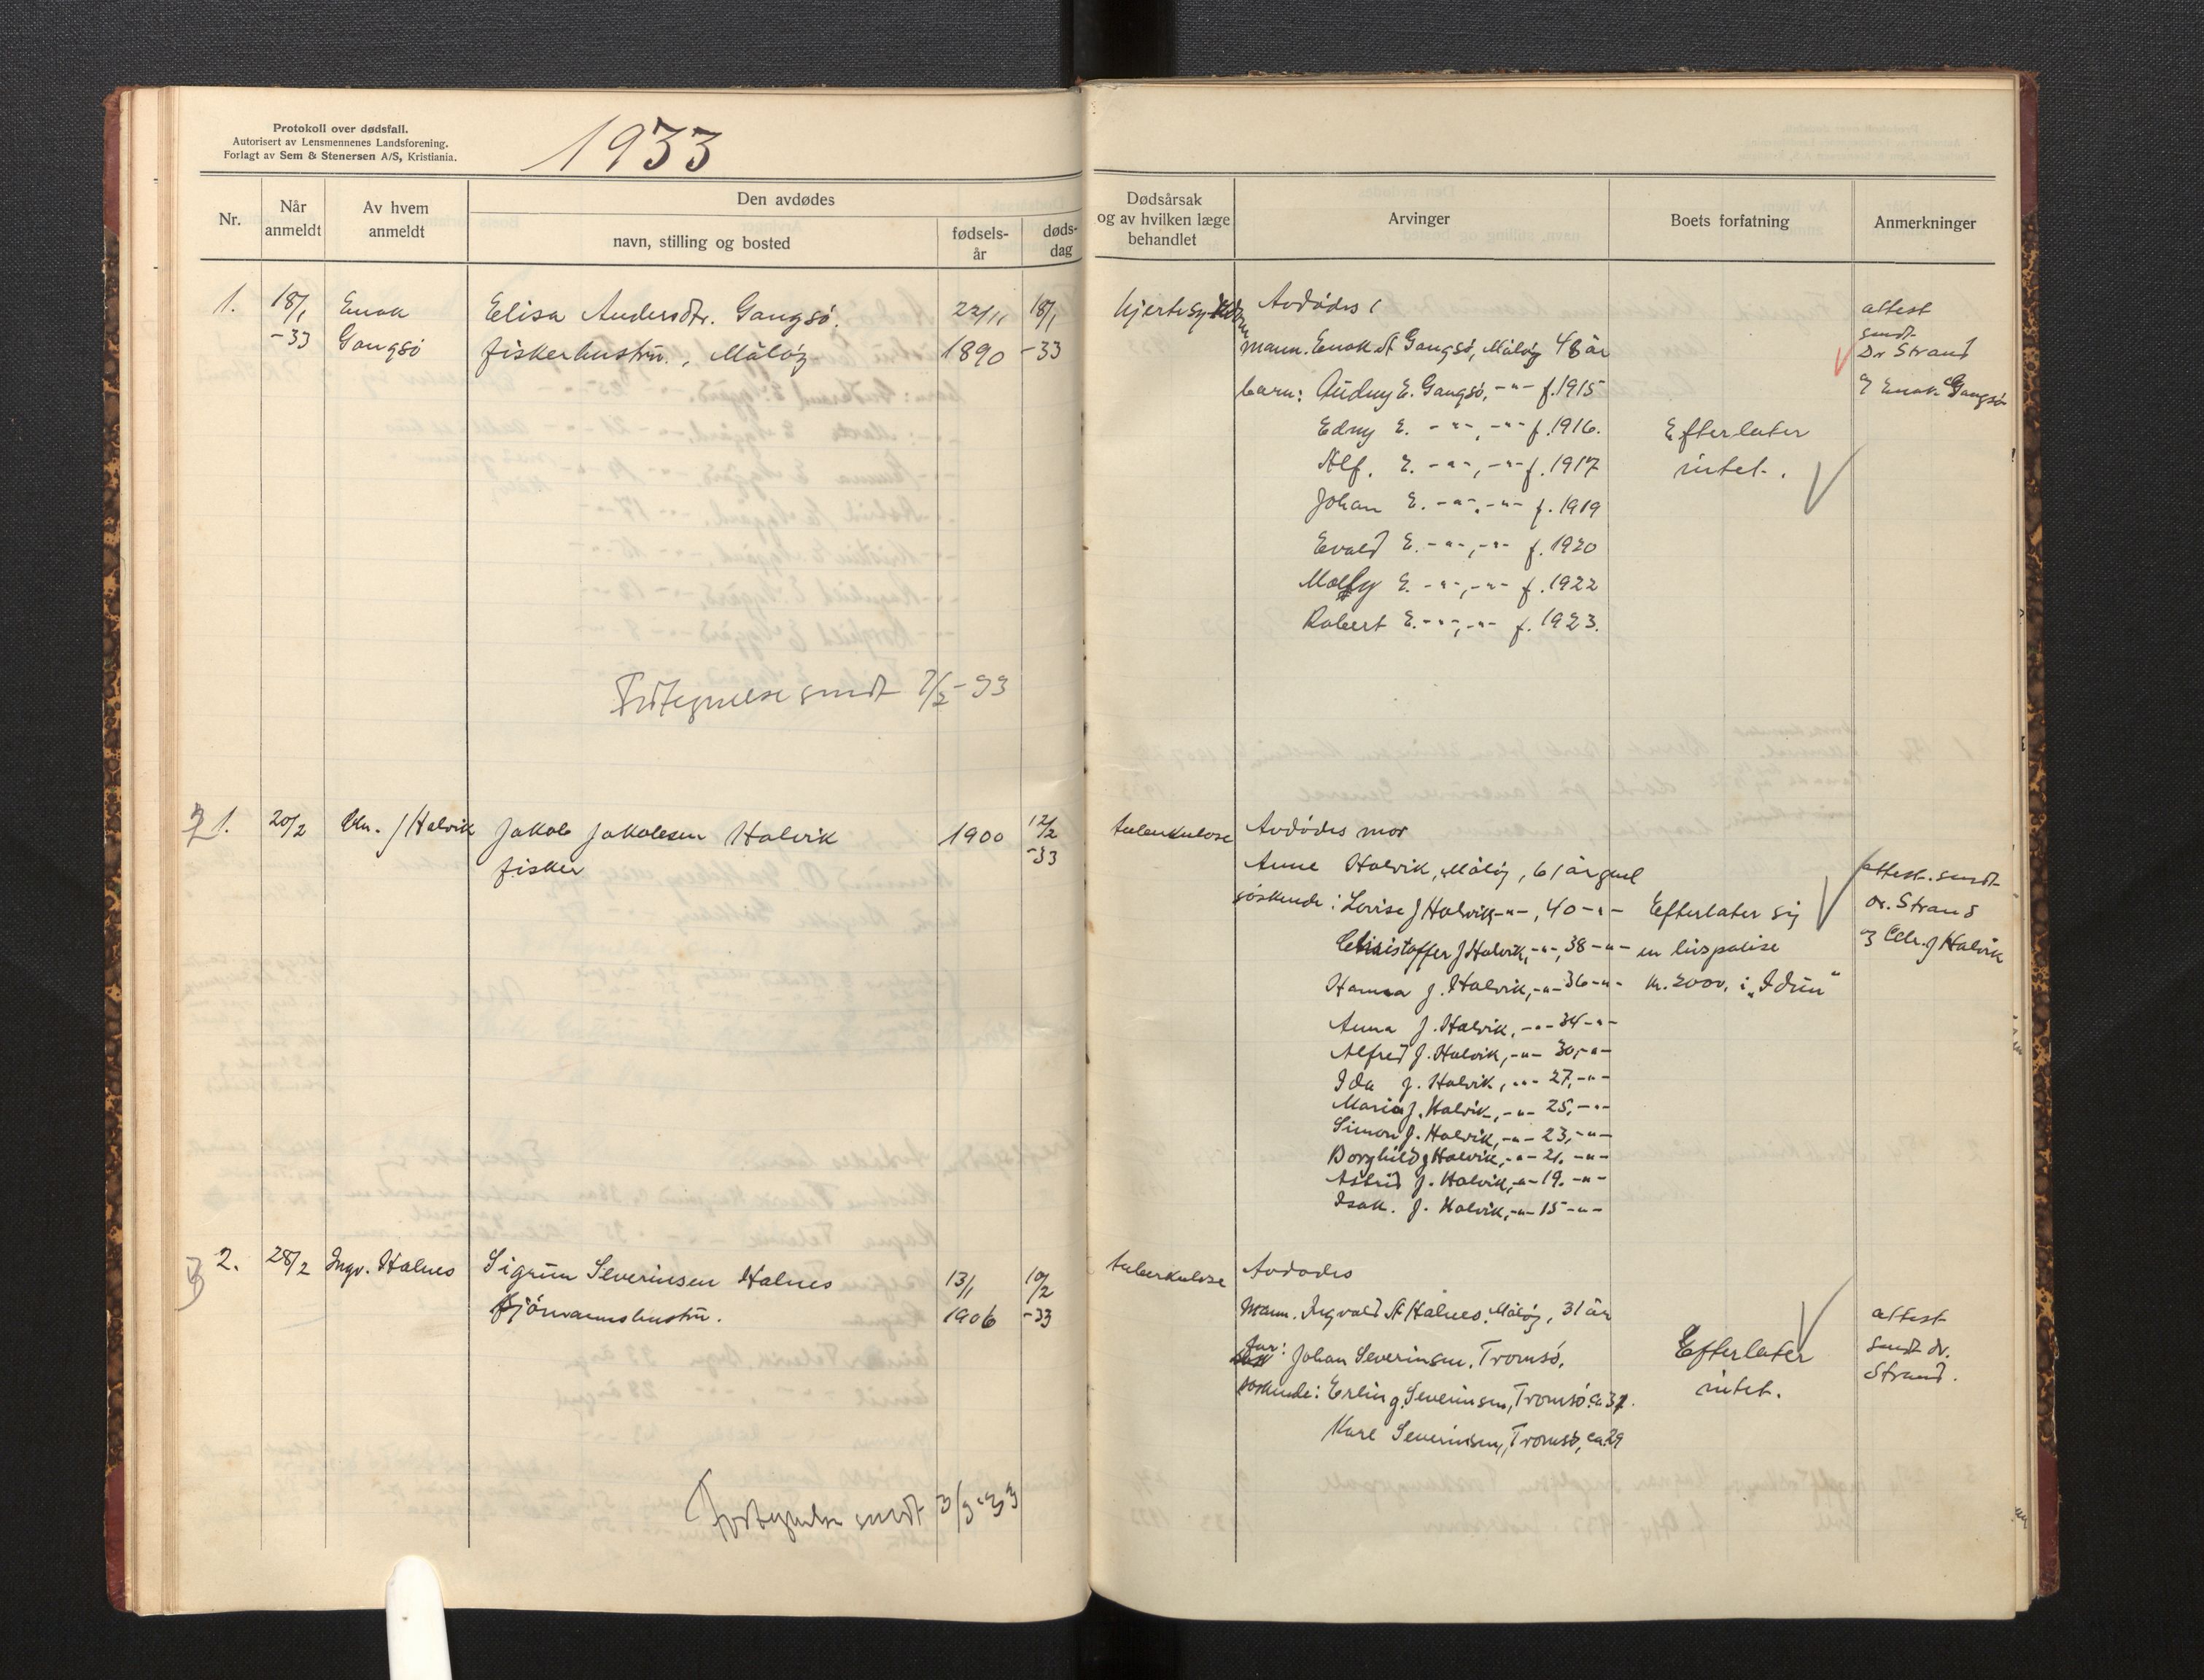 Protokoll over dødsfall.
Autorisert av Lensmennenes Landsforening.
Forlagt av Sem & Stenersen A/S, Kristiania.
1933
Nr.
Når anmeldt
Av hvem anmeldt
Den avdødes
navn, stilling og bosted
fødsels-år
døds-dag
Dødsårsak og av hvilken læge behandlet
Arvinger
Boets forfatning
Anmerkninger
1. 18/1 Enok Elisa Andersdtr. Gangsö. 22/11 18/1
-33 Gangsö fiskerhustru., Måløy 1890 -33
Avdødes
mann. Enok A Gangsö, Måløy 48 år
barn: Audny E. Gangsö, -"- f. 1915
Edny E. -"-, -"- f. 1916.
Alf. E. -"-, -"- f. 1917
Johan E. -"-, -"- f. 1919
Evald E. -"-, -"- f. 1920
E. -"-, -"- f. 1922
Robert E. -"-, -"- f. 1923.
Efterlater
intet.
attest
sendt
Dr Strand
Enok Gangsö
sendt 7/2-33
2 1. 20/2 J Halvik Jakob Jakobsen Halvik 1900 12/2
fisker -33
tuberkulose
Avdødes mor
Anne Halvik, Måløy, 61 år gml
söskende: Lovise J Halvik -"-, 40 -"-
Christoffer J Halvik, -"-, 38 -"-
Hanna J. Halvik, -"- 36 -"-
Anna J. Halvik, -"- 34 -"-
Alfred J. Halvik, -"- 30, -"-
Ida J. Halvik, -"- 27, -"-
Maria J. Halvik, -"- 25, -"-
Simon J. Halvik, -"- 23, -"-
Borghild J Halvik, -"- 21. -"-
Astrid J. Halvik, -"- 19. -"-
Isak. J. Halvik, -"- 15 -"-
Efterlater sig
en livspolise
kr. 2000. i „Idun"
attest. sendt
dr. Strand
J Halvik
3 2. 28/2 Ingv. Halnes Sigrun Severinsen Halnes 13/1 10/2
sjömannshustru. 1906 -33
tuberkulose
Avdødes
Mann. Ingvald A Halnes. Måløy, 31 år
far: Johan Severinsen, Tromsö.
söskende: Erling Severinsen, Tromsö. ca 31.
Kare Severinsen, Tromsö, ca. 29
Efterlater
intet.
attest
sendt dr.
Strand.
Fortegnelse sendt 3/3-33